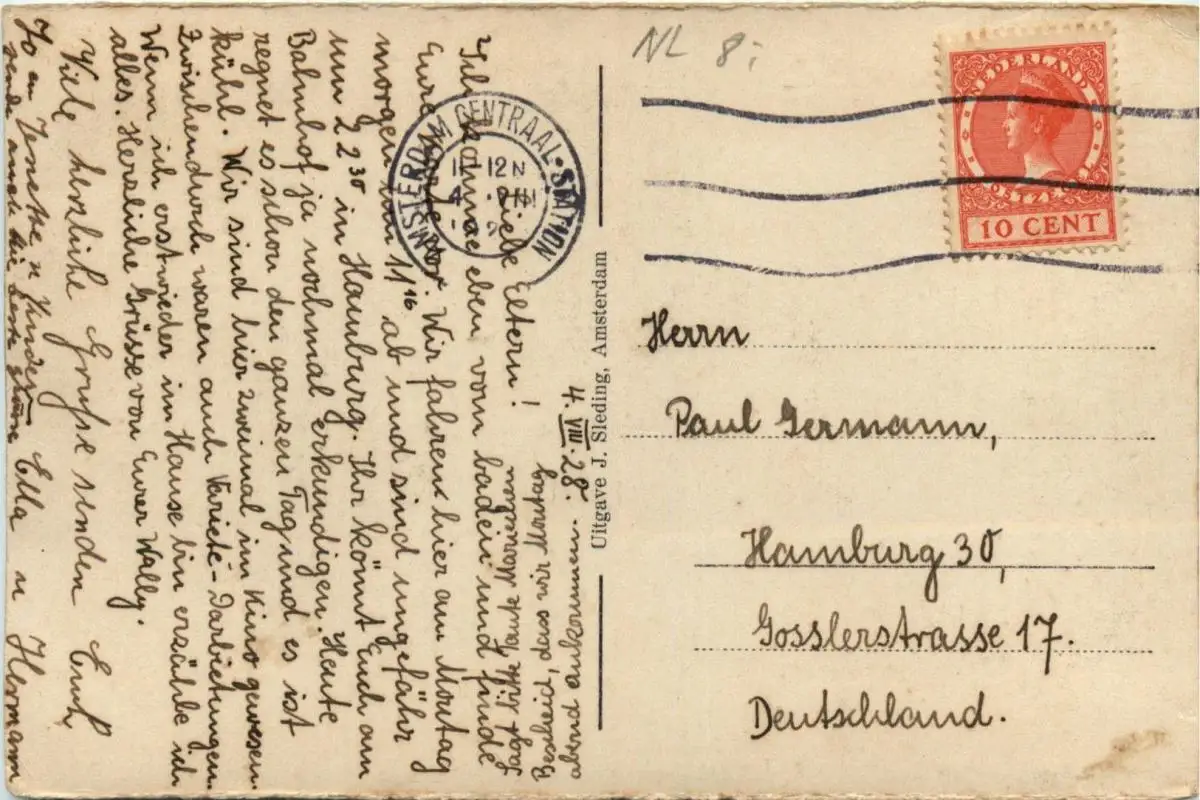 NL 8;
NEDERLAND
POSTZEGEL
10 CENT
AMSTERDAM CENTRAAL-STATION
12N
4 VIII
Uitgave J. Sleding, Amsterdam
Herrn
Paul Germann,
Hamburg 30,
Gosslerstrasse 17.
Deutschland.
4. VIII. 28.
Liebe Eltern!
Ich komme eben vom baden und finde
Eure vor. Wir fahren hier am Montag
morgen um 11 16 ab und sind ungefähr
um 2 30 in Hamburg. Ihr könnt Euch am
Bahnhof ja nochmal erkundigen. Heute
regnet es schon den ganzen Tag und es ist
kühl. Wir sind hier zweimal im Kino gewesen.
Zwischendurch waren auch Varieté-Darbietungen.
Wenn ich erst wieder im Hause bin erzähle ich
alles. Herzliche Grüsse von Eurer Wally.
Viele herzliche Grüße senden
Ella u Hermann
Bitte sagt Tante
Bescheid, dass wir Montag
abend ankommen.